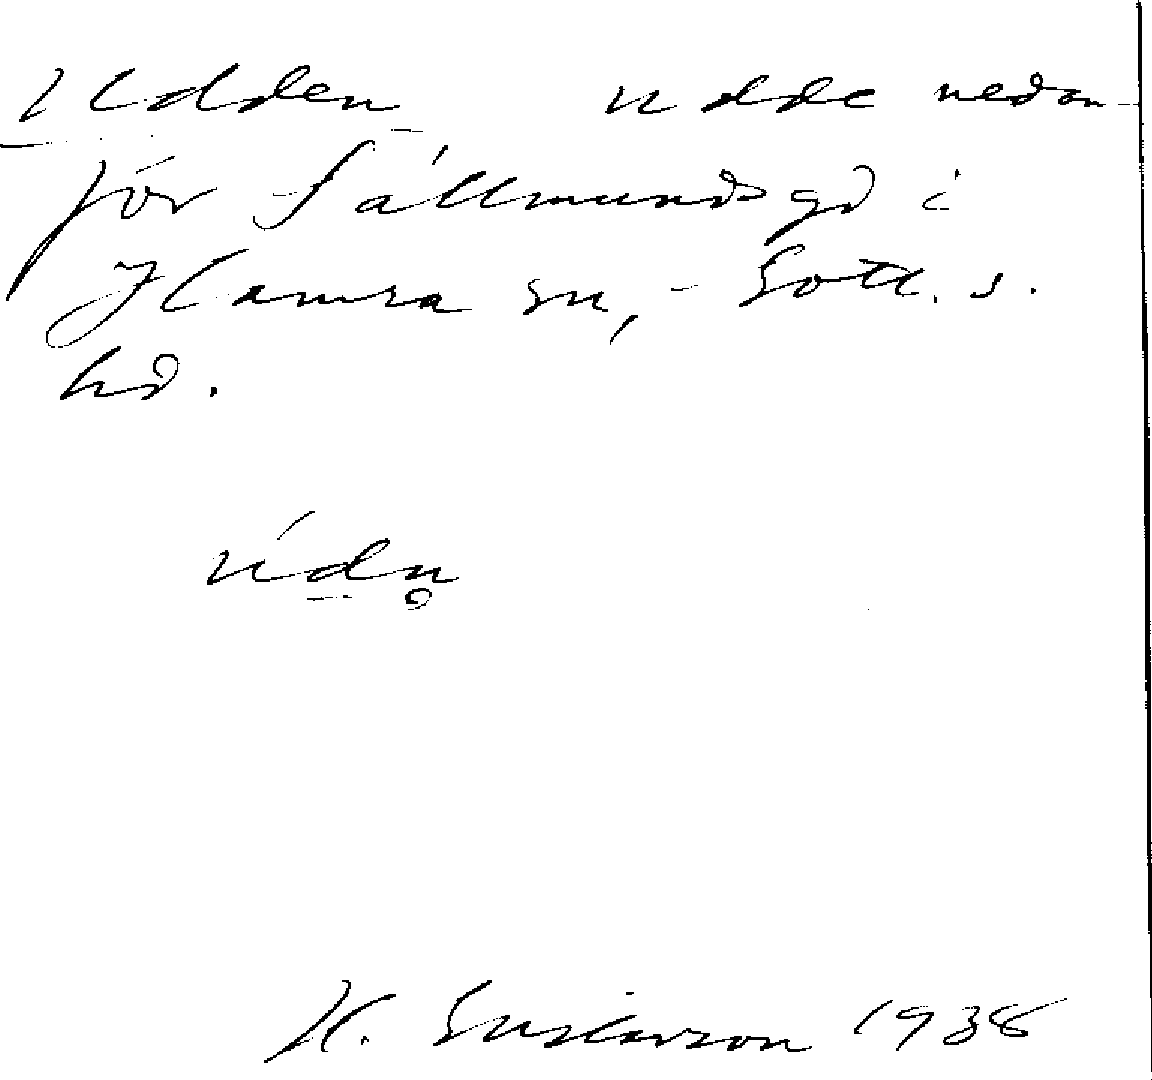 Udden udde nedan-
för Sállmunds gd i
Hamra sn, - Gotl. s.
hd.
údn̥
H. Gustavson 1938